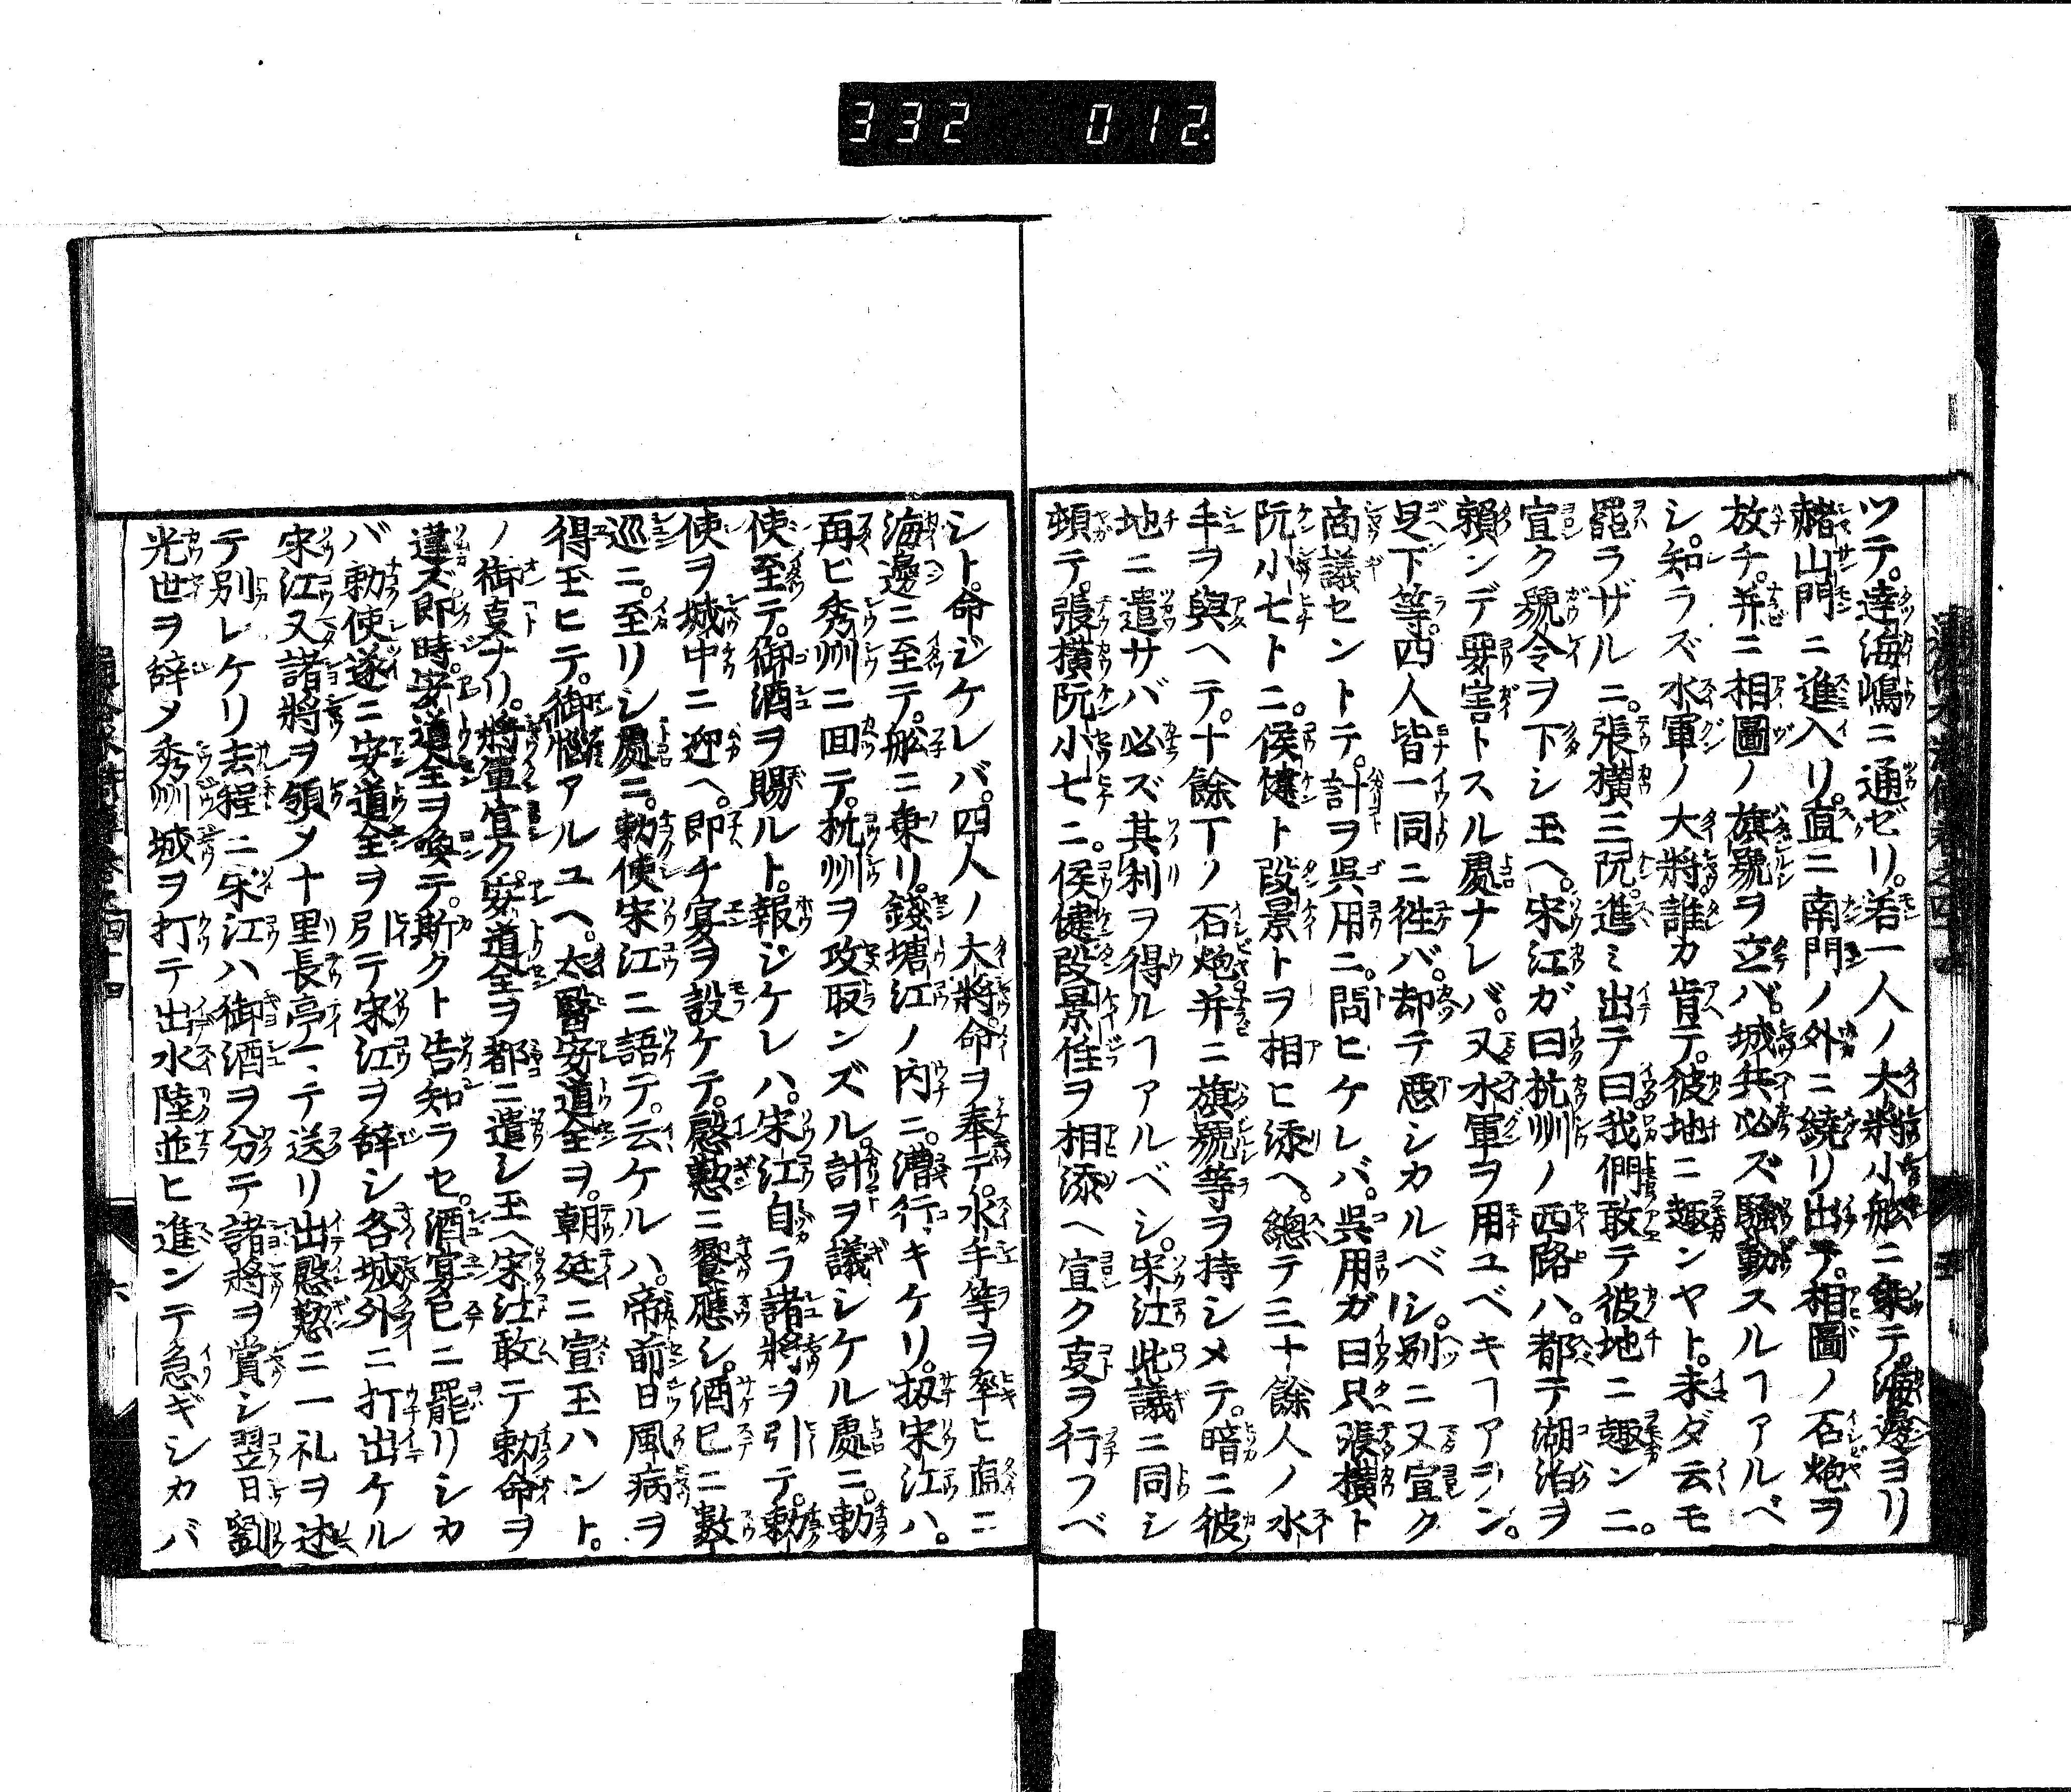 332 012.
ツテ。達海嶋ニ通ゼリ。若一人ノ大將小舩ニ乗テ。海邊ヨリ
赭山門ニ進入リ。直ニ南門ノ外ニ繞リ出テ。相圖ノ石炮ヲ
放チ。并ニ相圖ノ旗號ヲ立バ。城兵必ズ騒動スルヿアルベ
シ。知ラズ水軍ノ大將。誰カ肯テ。彼地ニ趣ンヤト。未ダ云モ
罷ラザルニ。張横三阮。進ミ出テ曰我們敢テ彼地ニ趣ンニ。
宣ク號令ヲ下シ玉ヘ。宋江ガ曰杭州ノ西路ハ。都テ湖泊ヲ
頼ンデ要害トスル處ナレバ。又水軍ヲ用ユベキヿアラン。
足下等。四人皆一同ニ徃バ。却テ惡シカルベシ。別ニ又宣ク
商議セントテ。計ヲ呉用ニ。問ヒケレバ。呉用ガ曰只張横ト
阮小七トニ。侯健ト段景トヲ相ヒ添ヘ。總テ三十餘人ノ水
手ヲ與ヘテ。十餘丁ノ石炮并ニ旗號等ヲ持シメテ。暗ニ彼
地ニ遣サバ必ズ其利ヲ得ルヿアルベシ。宋江此議ニ同シ
頓テ。張横阮小七ニ。侯健段景住ヲ相添ヘ宣ク叓ヲ行フベ
シト。命ジケレバ。四人ノ大將命ヲ奉テ。水手等ヲ率ヒ直ニ
海邊ニ至テ。舩ニ乗リ。錢塘江ノ内ニ。漕行キケリ。扨宋江ハ。
再ビ秀州ニ回テ。杭州ヲ攻取ンズル。計ヲ議シケル處ニ。勅
使至テ。御酒ヲ賜ルト。報ジケレハ。宋江自ラ諸將ヲ引テ。勅
使ヲ城中ニ迎ヘ。即チ宴ヲ設ケテ。慇懃ニ饗應シ。酒已ニ數
巡ニ。至リシ處ニ。勅使宋江ニ語テ。云ケルハ。帝前日風病ヲ
得玉ヒテ。御惱アルユヘ。太醫安道全ヲ。朝廷ニ宣玉ハント。
ノ御叓ナリ。將軍宜ク。安道全ヲ都ニ遣シ玉ヘ宋江敢テ勅命ヲ
違ズ即時安道全ヲ喚テ。斯クト告知ラセ。酒宴已ニ罷リシカ
バ勅使遂ニ安道全ヲ引テ宋江ヲ辞シ各城外ニ打出ケル
宋江又諸將ヲ領メ十里長亭ニテ送リ出慇懃ニ一礼ヲ述
テ別レケリ去程ニ宋江ハ御酒ヲ分テ諸將ヲ賞シ翌日劉
光世ヲ辞メ秀州城ヲ打テ出水陸並ヒ進ンテ急ギシカバ